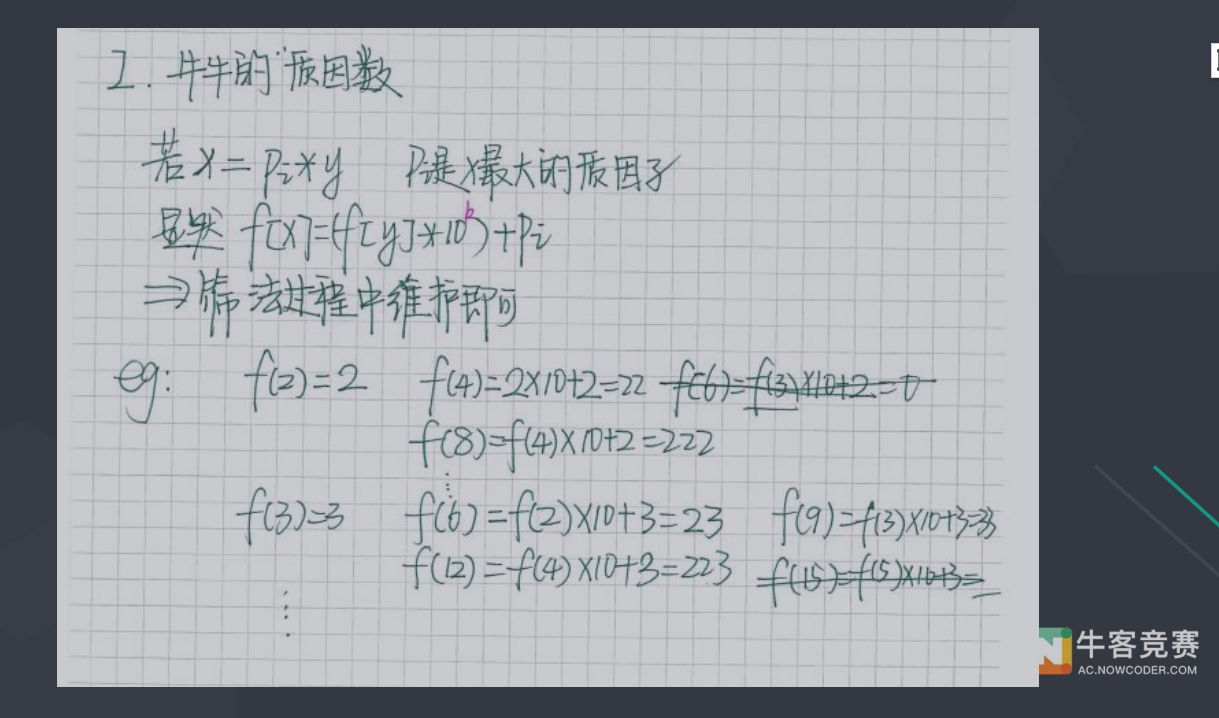 I. 牛牛的质因数
若 x = pi * y pi是x最大的质因子
显然 f[x]=(f[y]*10^b)+pi
⇒筛法过程中维护即可
eg: f(2)=2 f(4)=2×10+2=22 f(6)=f(3)×10+2=0
f(8)=f(4)×10+2=222
f(3)=3 f(6)=f(2)×10+3=23 f(9)=f(3)×10+3=33
f(12)=f(4)×10+3=223 f(15)=f(5)×10+3=
牛客竞赛
AC.NOWCODER.COM